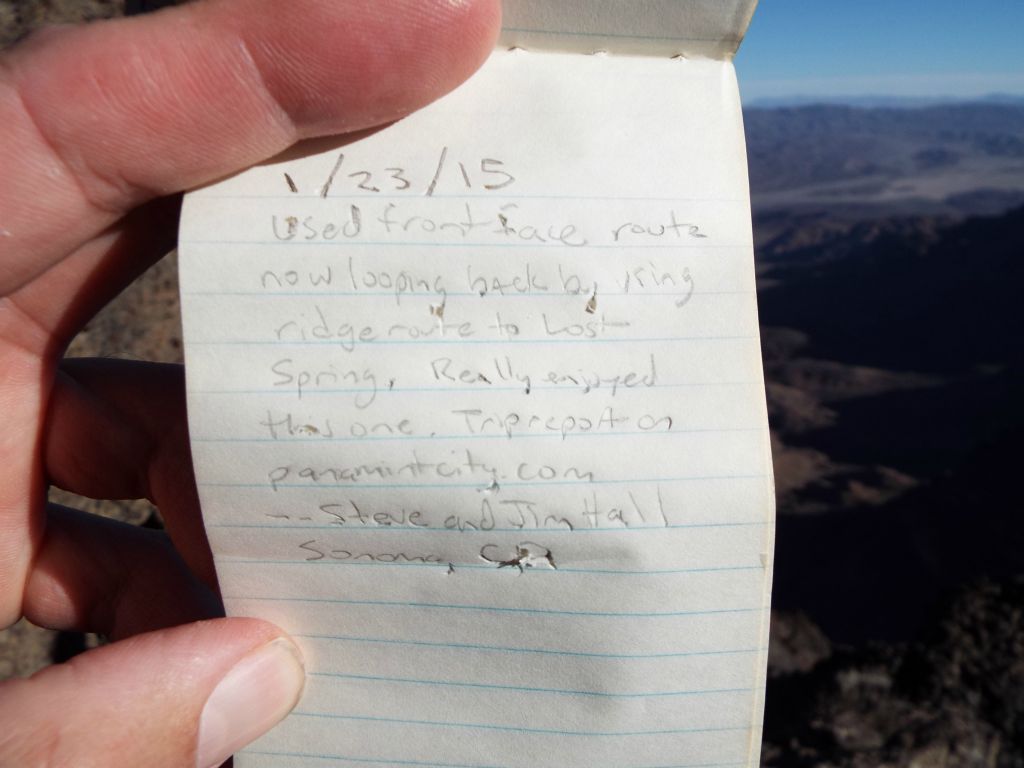 1/23/15
Used front face route
now looping back by King
ridge route to Lost
Spring, Really enjoyed
this one. Trip report on
panamintcity.com
-- Steve and Jim Hall
Sonoma, CA